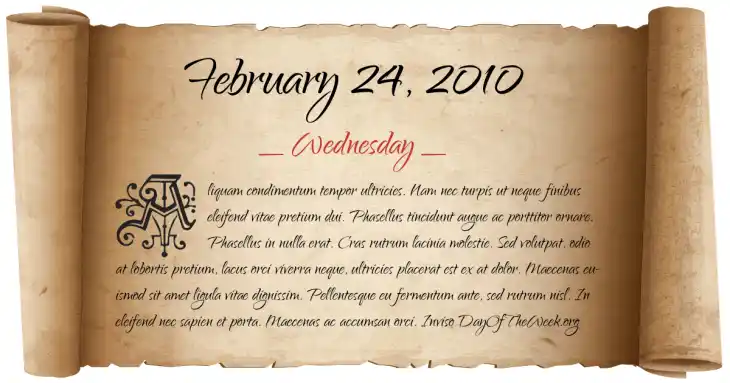 February 24, 2010
— Wednesday —
Aliquam condimentum tempor ultricies. Nam nec turpis ut neque finibus
eleifend vitae pretium dui. Phasellus tincidunt augue ac porttitor ornare.
Phasellus in nulla erat. Cras rutrum lacinia molestie. Sed volutpat, odio
at lobortis pretium, lacus orci viverra neque, ultricies placerat est ex at dolor. Maecenas eu-
ismod sit amet ligula vitae dignissim. Pellentesque eu fermentum ante, sed rutrum nisl. In
eleifend nec sapien et porta. Maecenas ac accumsan orci. Inviso DayOfTheWeek.org